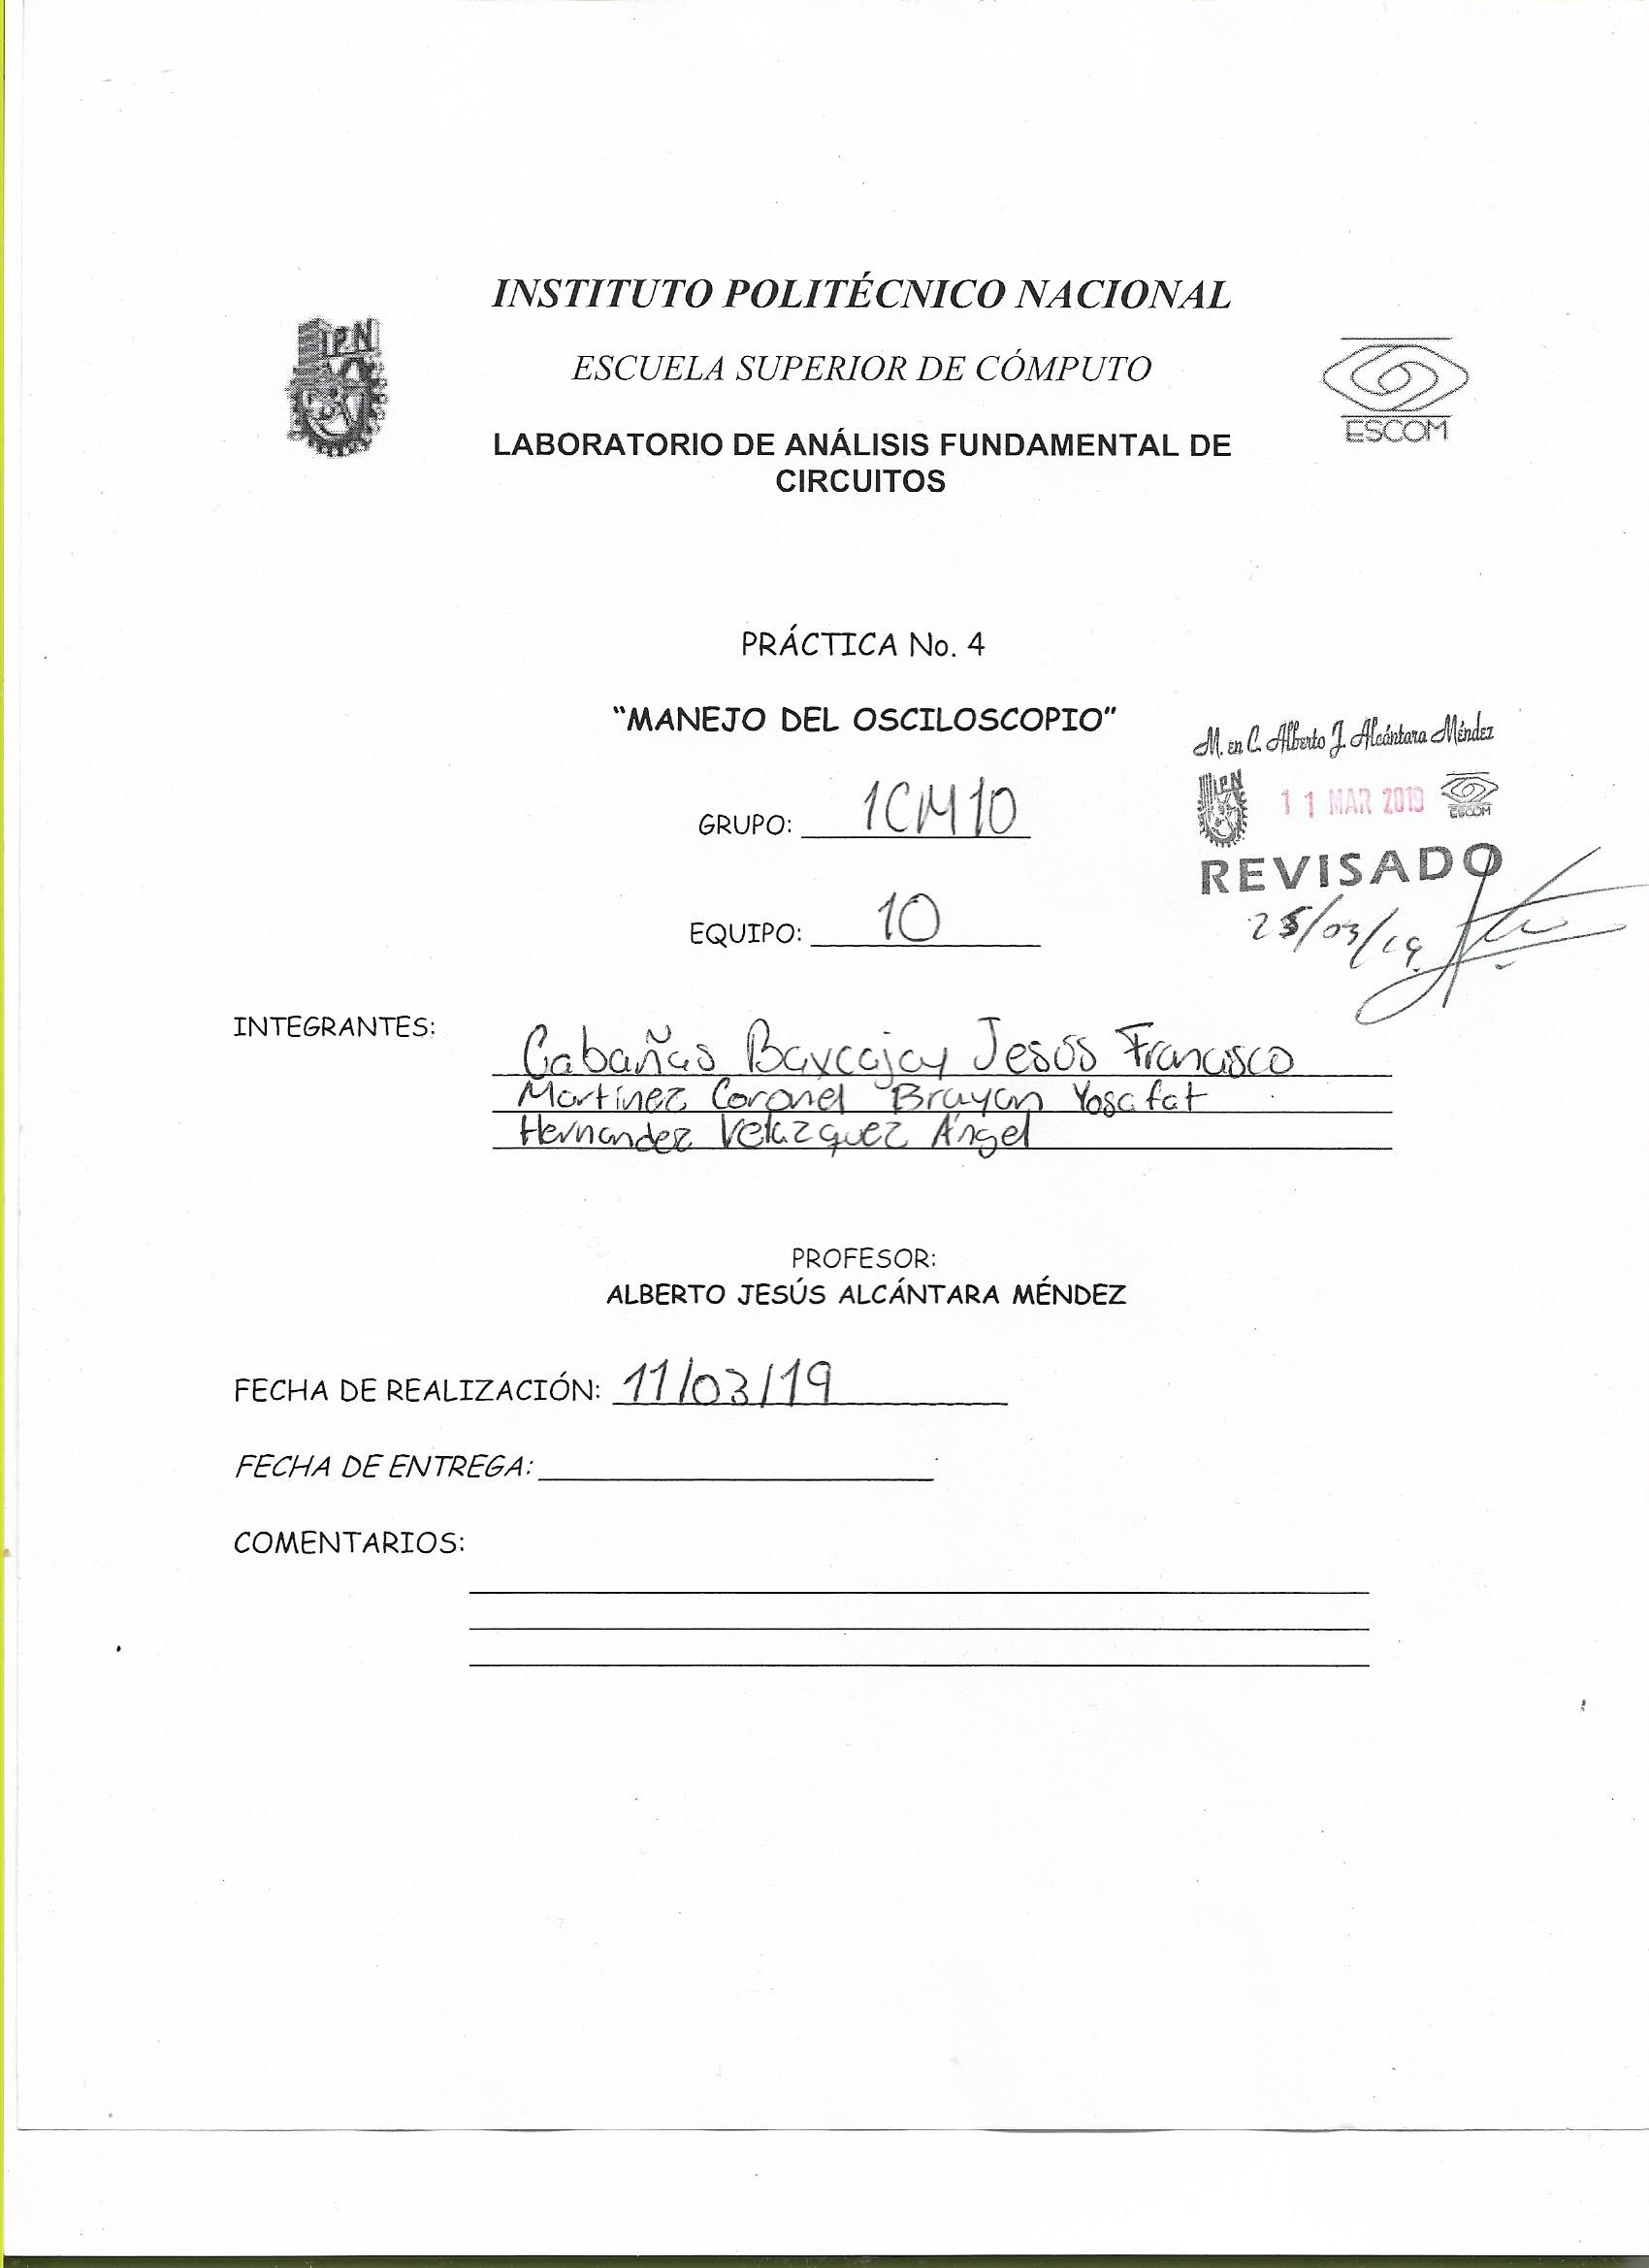 INSTITUTO POLITÉCNICO NACIONAL
IPN
ESCUELA SUPERIOR DE CÓMPUTO
ESCOM
LABORATORIO DE ANÁLISIS FUNDAMENTAL DE
CIRCUITOS
PRÁCTICA No. 4
"MANEJO DEL OSCILOSCOPIO"
M. en C. Alberto J. Alcántara Méndez
IPN 11 MAR 2019 ESCOM
GRUPO: 1CM10
REVISADO
25/03/19
EQUIPO: 10
INTEGRANTES:
Cabañas Baxcajay Jesús Francisco
Martínez Coronel Brayan Yosafat
Hernandez Velazquez Ángel
PROFESOR:
ALBERTO JESÚS ALCÁNTARA MÉNDEZ
FECHA DE REALIZACIÓN: 11/03/19
FECHA DE ENTREGA:
COMENTARIOS: